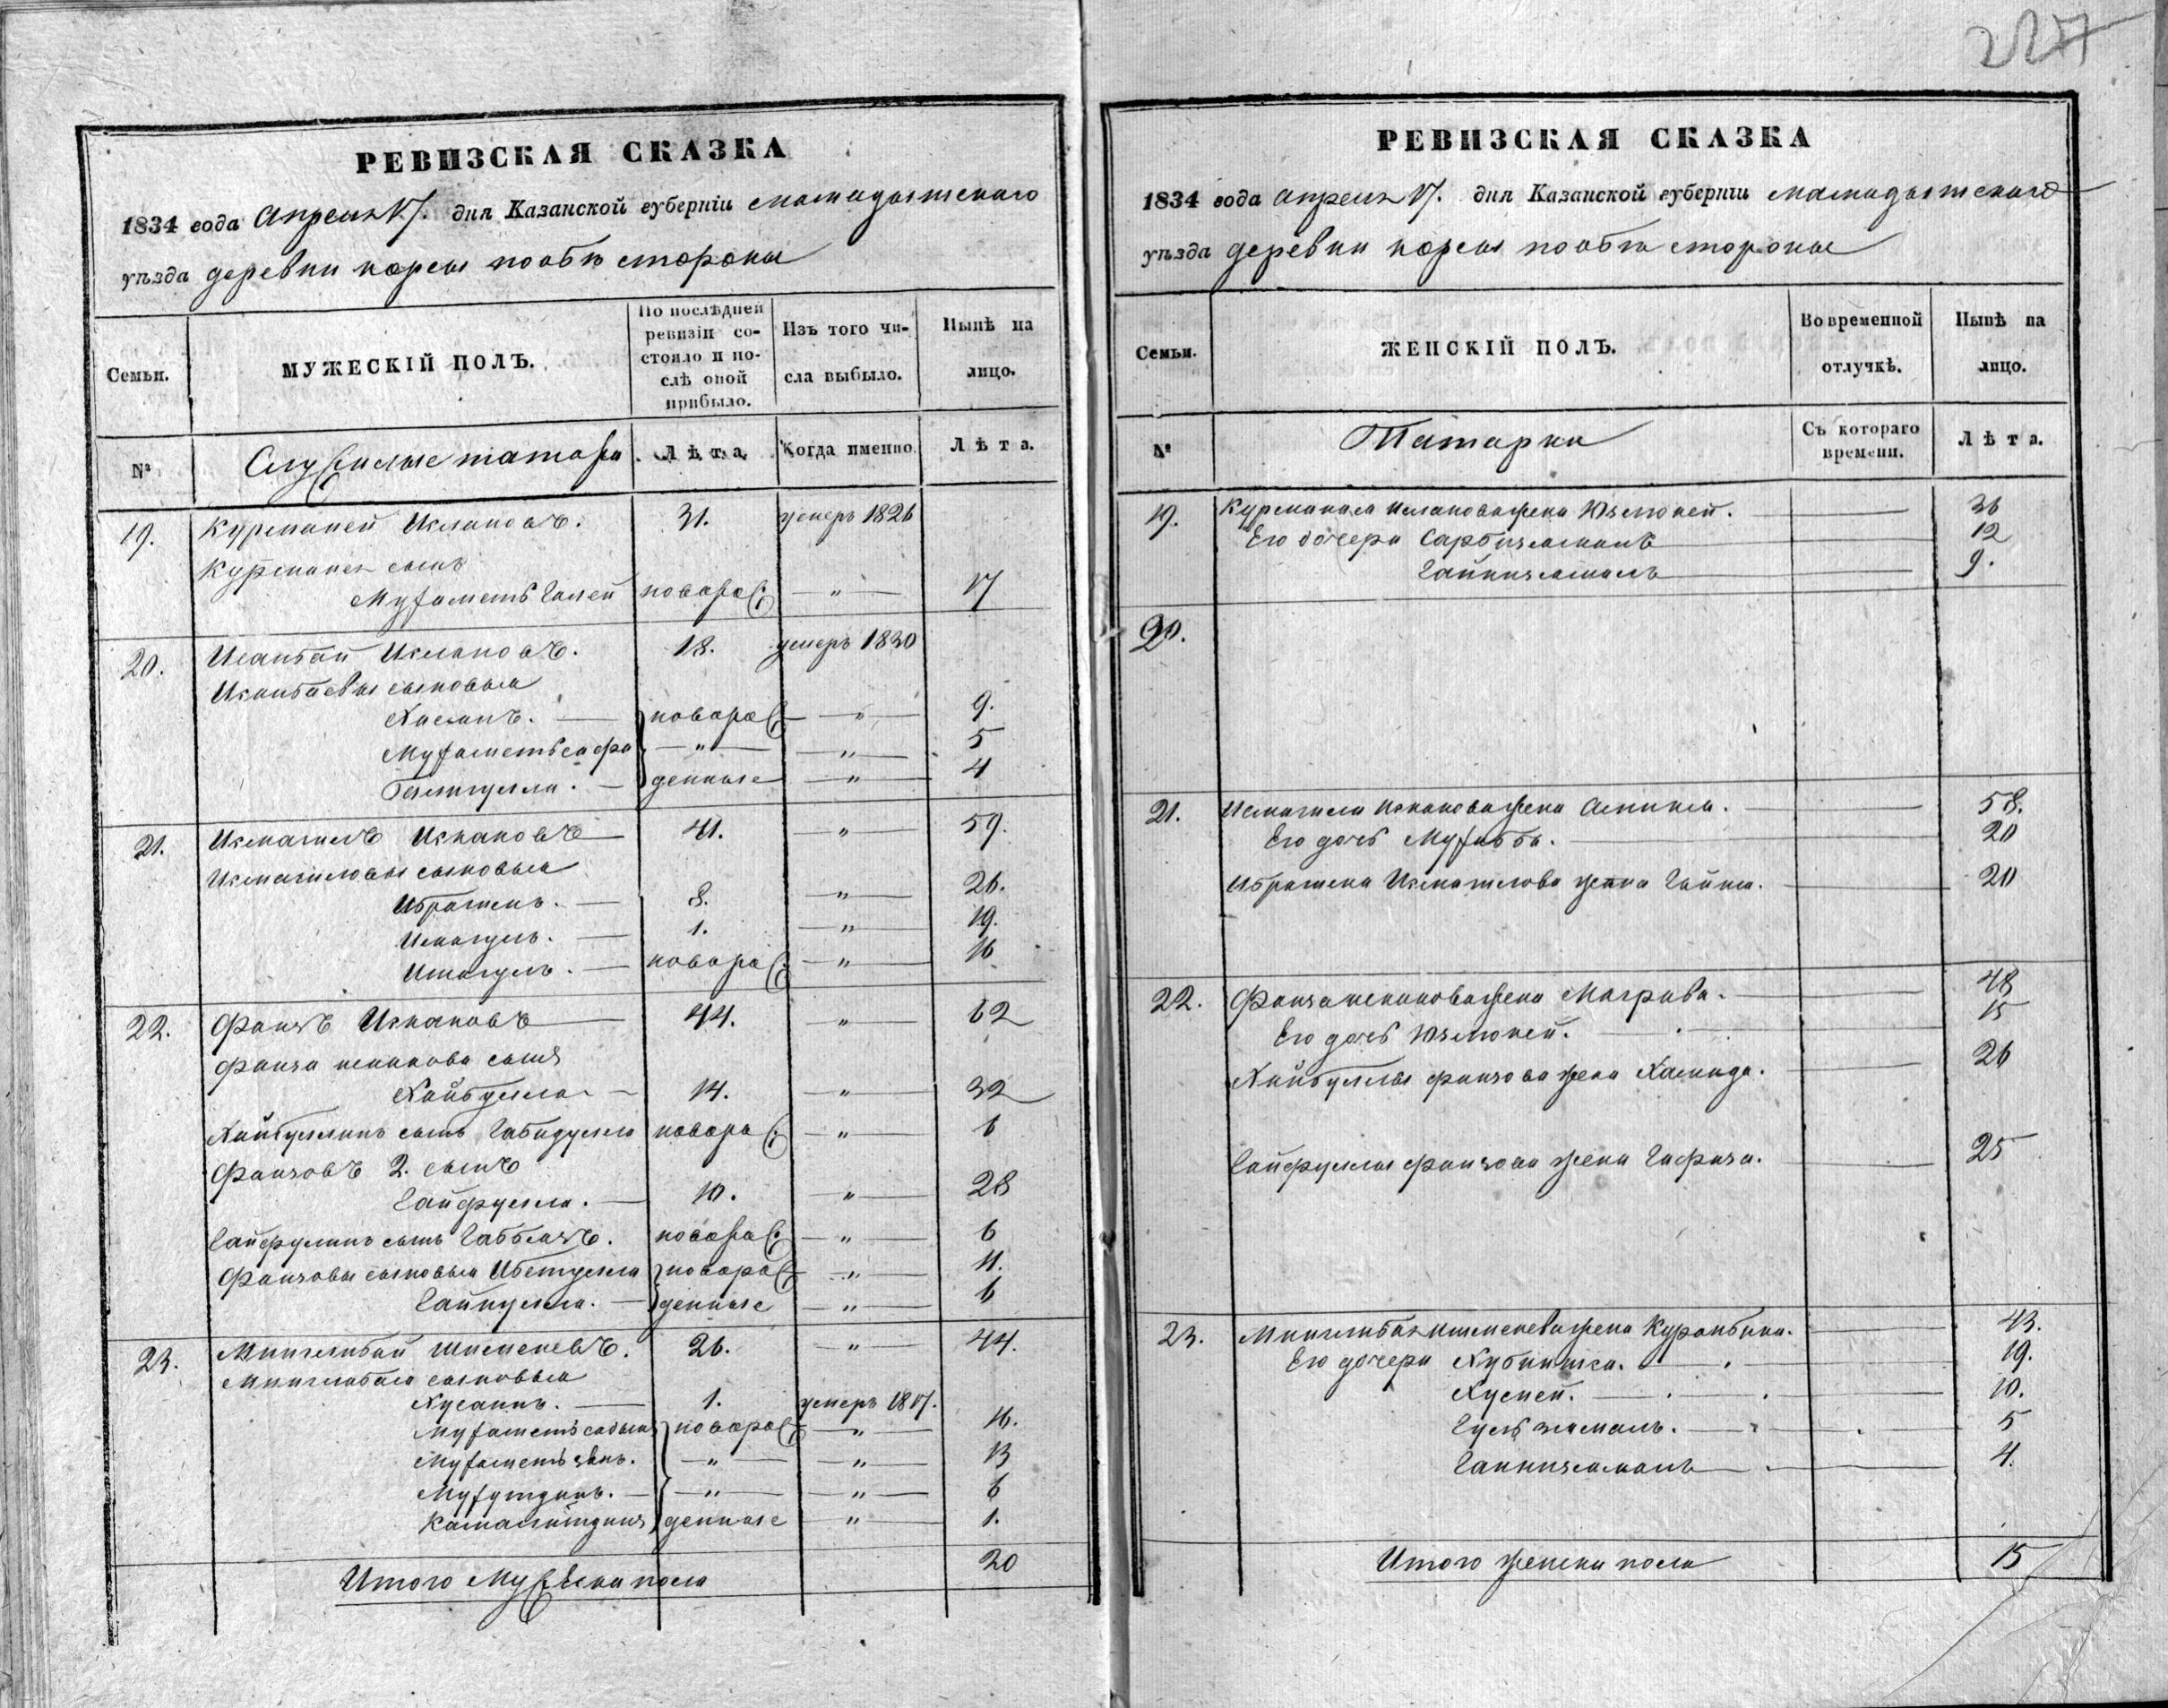 227
РЕВИЗСКАЯ СКАЗКА
1834 года Апреля 17. дня Казанской губерніи мамадышскаго
уѣзда деревни корсы по обѣ стороны
Семьи.
МУЖЕСКІЙ ПОЛЪ.
По послѣдней ревизіи состояло и послѣ оной прибыло.
Изъ того числа выбыло.
Нынѣ на лицо.
№
Служилые татары
Лѣта.
Когда именно
Лѣта.
19. Курманей Исмановъ. 31. умеръ 1826
Курманея сынъ
Мухаметь Галей новорож: " 17
20. Исанбай Исмановъ. 18. умеръ 1830
Исанбаевы сыновья
Хасанъ. новорож " 9.
Мухаметьсафа " " 5
Галиулла. денные " 4
21. Исмагилъ Искаковъ 41. " 59.
Исмагиловы сыновья
Ибрагимъ. 8. " 26.
Исмагулъ. 1. " 19.
Ишмагулъ. новорож: " 16
22. Фаизъ Искаковъ 44. " 62
Фаиза искакова сынъ
Хайбулла 14. " 32
Хайбуллинъ сынъ Габидулла новорож: " 6
Фаизовъ 2. сынъ
Гайфулла. 10. " 28
Гайфулинъ сынъ Габбасъ. новорож: " 6
Фаизовы сыновья Ибетулла новорож " 11.
Гайнулла. денные " 6
23. Мингалибай Ишменевъ. 26. " 44.
Мингалибая сыновья
Хусаинъ. 1. умеръ 1817.
Мухаметьсадыкъ новорож " 16.
Мухаметьзянъ. " " 13
Мухутдинъ. " " 6
Камалитдинъ денные " 1.
Итого Мужеска пола 20
РЕВИЗСКАЯ СКАЗКА
1834 года апреля 17. дня Казанской губерніи мамадышскаго
уѣзда деревни корсы по обѣ стороны
Семьи.
ЖЕНСКІЙ ПОЛЪ.
Во временной отлучкѣ.
Нынѣ на лицо.
№
Татарки
Съ котораго времени.
Лѣта.
19. Курманея Исманова жена Юзмокей. 36
Его дочери Сарбизямалъ 12
Гайнизямалъ 9.
20.
21. Исмагила Искакова жена Амина. 58.
Его дочь Мухибба. 20
Ибрагима Исмагилова жена Гайша. 20
22. Фаиза искакова жена Магрива. 48
Его дочь Юзмокей. 15
Хайбуллы фаизова жена Хамида. 26
Гайфуллы фаизова жена Гафиза. 25
23. Мингалибая ишменева жена Куранбика. 43.
Его дочери Хубиниса. 19.
Хусней. 10.
Гульзямалъ. 5
Гайнизямалъ 4.
Итого женска пола 15